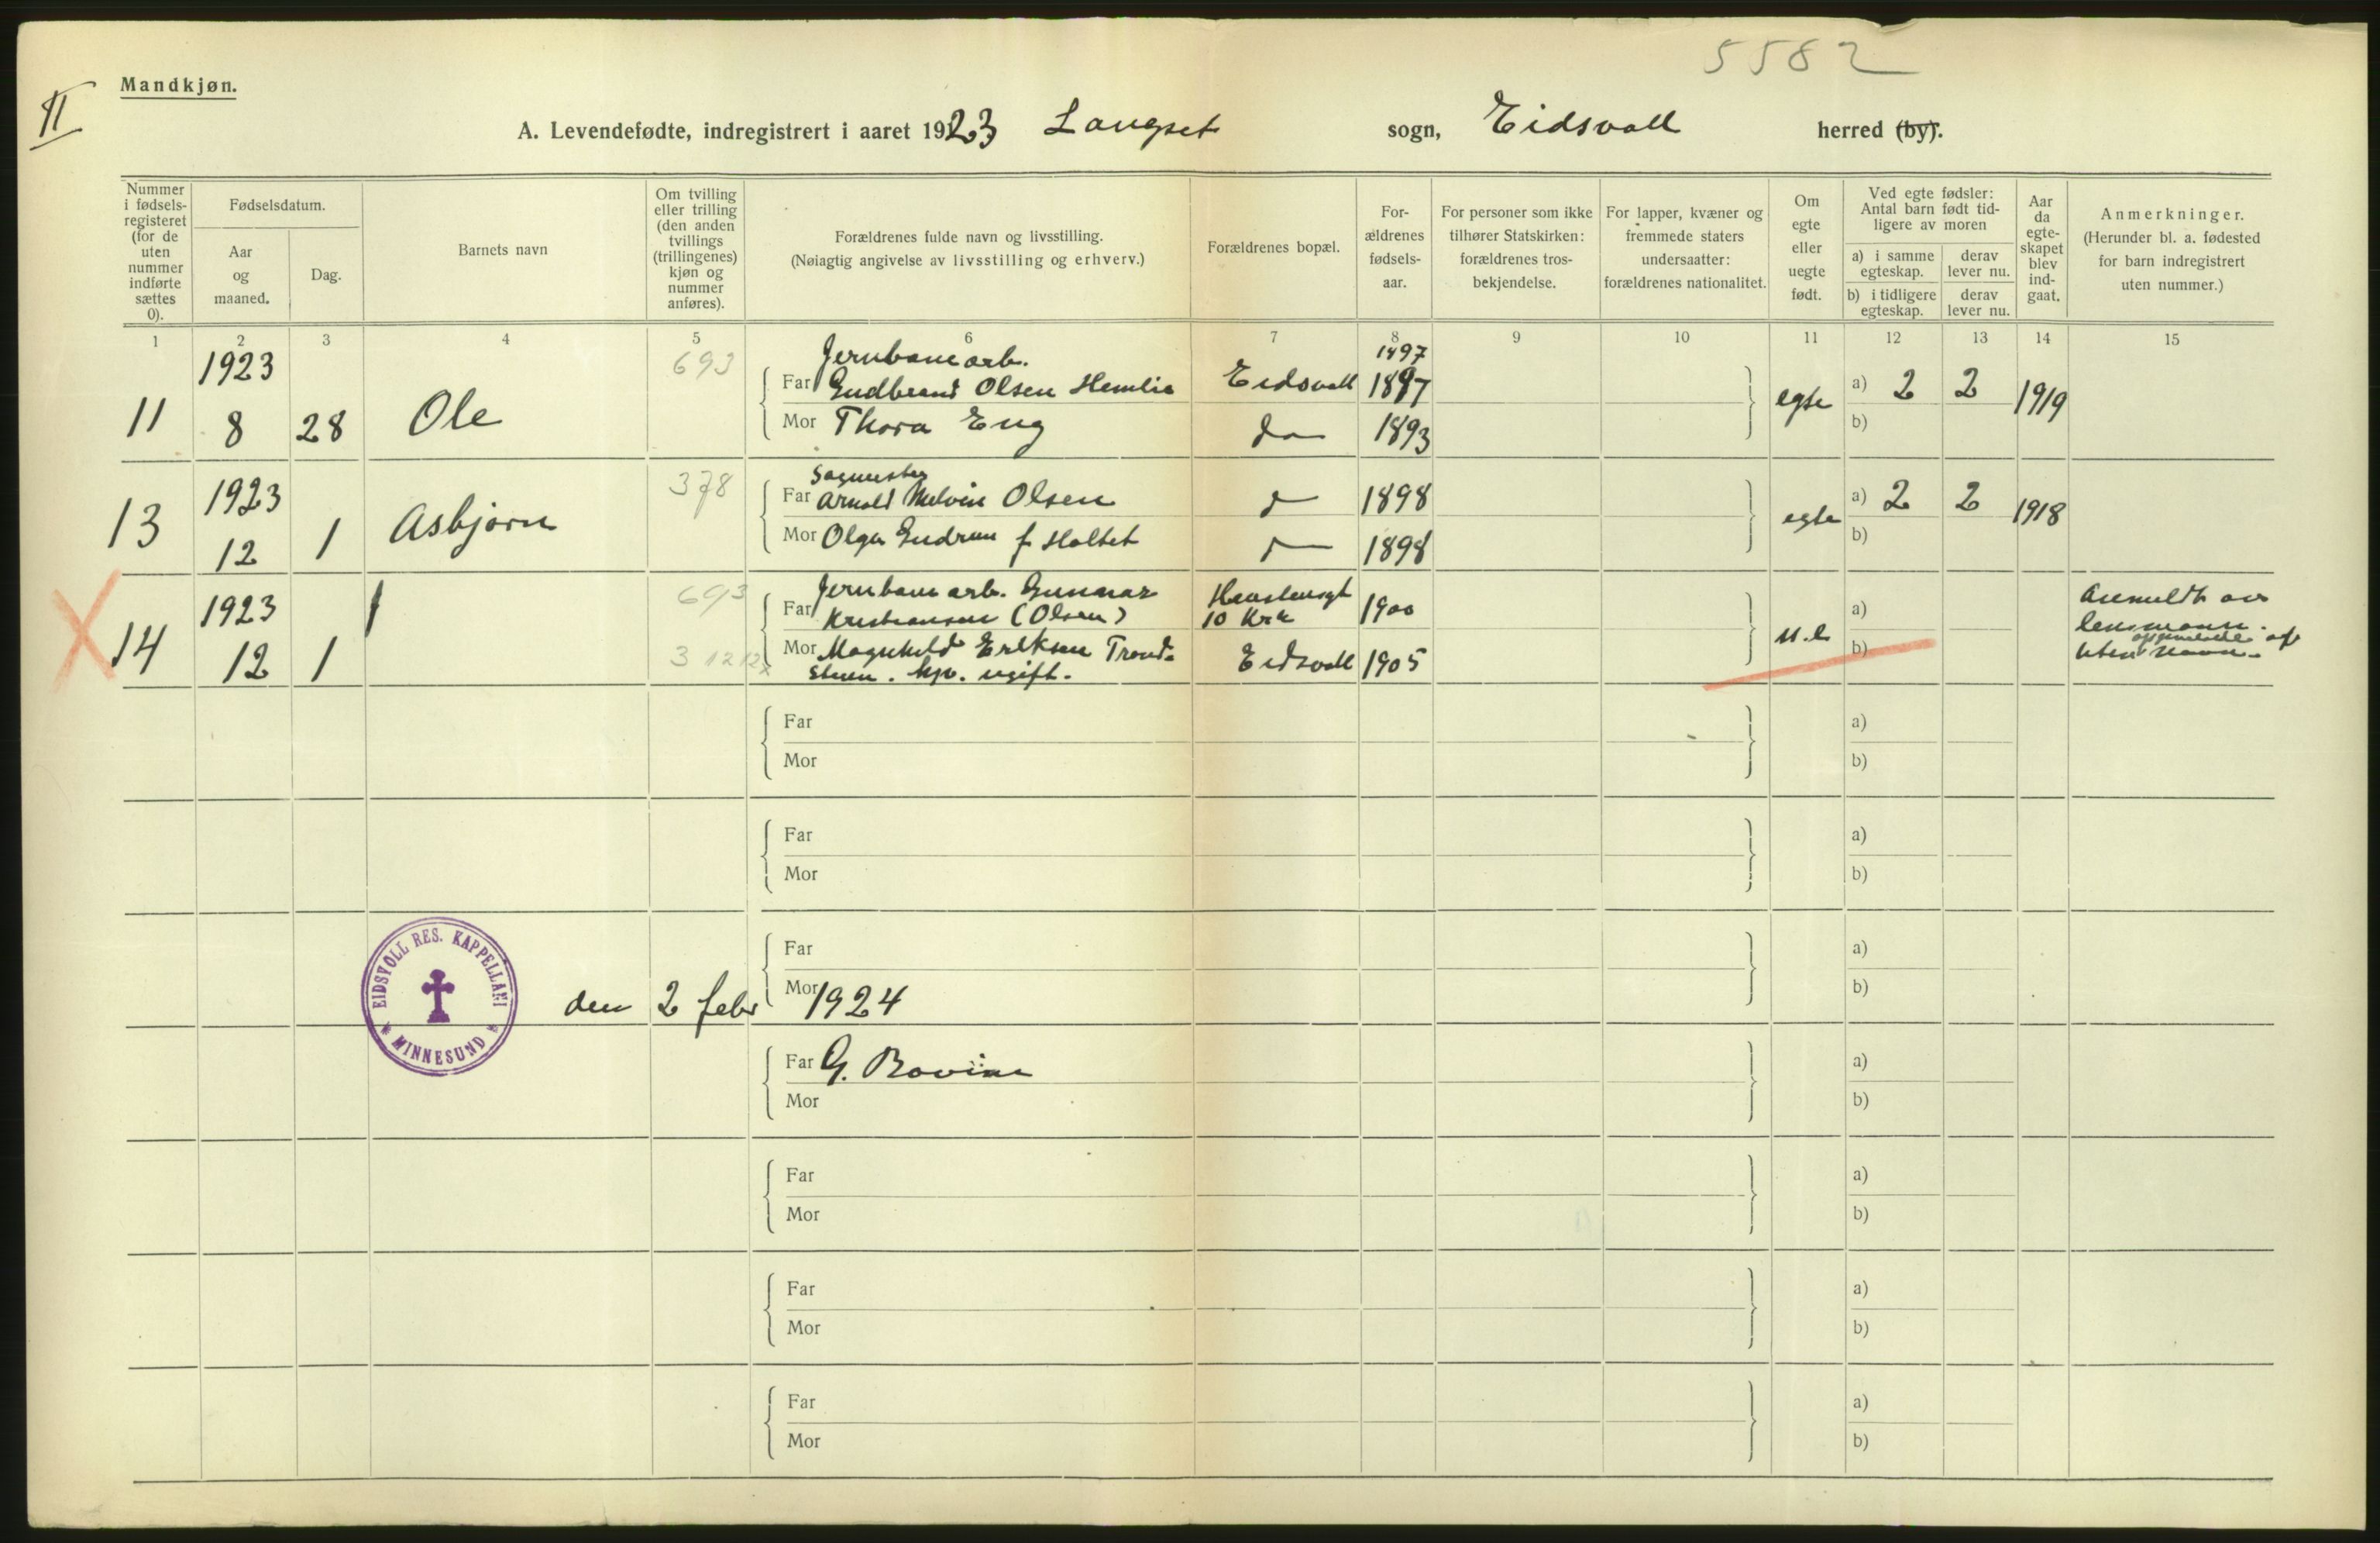 5582
II
Mandkjøn.
A. Levendefødte, indregistrert i aaret 1923 Langset sogn, Eidsvoll herred (by).
Nummer i fødsels-registeret (for de uten nummer indførte sættes 0).
Fødselsdatum.
Aar og maaned.
Dag.
Barnets navn
Om tvilling eller trilling (den anden tvillings (trillingenes) kjøn og nummer anføres).
Forældrenes fulde navn og livsstilling.
(Nøiagtig angivelse av livsstilling og erhverv.)
Forældrenes bopæl.
For-ældrenes fødsels-aar.
For personer som ikke tilhører Statskirken: forældrenes tros-bekjendelse.
For lapper, kvæner og fremmede staters undersaatter: forældrenes nationalitet.
Om egte eller uegte født.
Ved egte fødsler: Antal barn født tid-ligere av moren
a) i samme egteskap.
derav lever nu.
b) i tidligere egteskap.
derav lever nu.
Aar da egte-skapet blev ind-gaat.
Anmerkninger.
(Herunder bl. a. fødested for barn indregistrert uten nummer.)
1 2 3 4 5 6 7 8 9 10 11 12 13 14 15
1923 693 Jernbanearb. 1897
Far Gudbrand Olsen Hemlie Eidsvoll 1897 a) 2 2
11 8 28 Ole egte 1919
Mor Thora Eng do 1893 b)
1923 378 Sagmester
Far Arnold Melvin Olsen 1898 a) 2 2
13 12 1 Asbjørn egte 1918
Mor Olga Gudrun f Holtet 1898 b)
1923 693 Jernbanearb. Gunnar
Far Kristiansen (Olsen) 10 Kra 1900 a)
14 12 1 u.e.
Mor Magnhild Eriksen Trond- Eidsvoll 1905 b)
3 12 12 stuen. ugift.
lensmann.
uten navn.
Far a)
Mor b)
Far a)
Mor b)
EIDSVOLL RES. KAPPELLANI
MINNESUND
Far a)
Mor b)
den 2 febr 1924
Far G. Bovim a)
Mor b)
Far a)
Mor b)
Far a)
Mor b)
Far a)
Mor b)